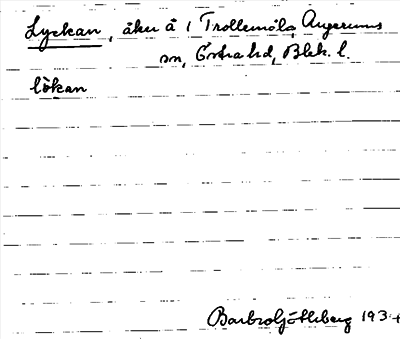 Lyckan, åker å 1 Trollemåla, Augerums
sn, Östra hd, Blek. l.
lökan
Barbro Götheberg 1934